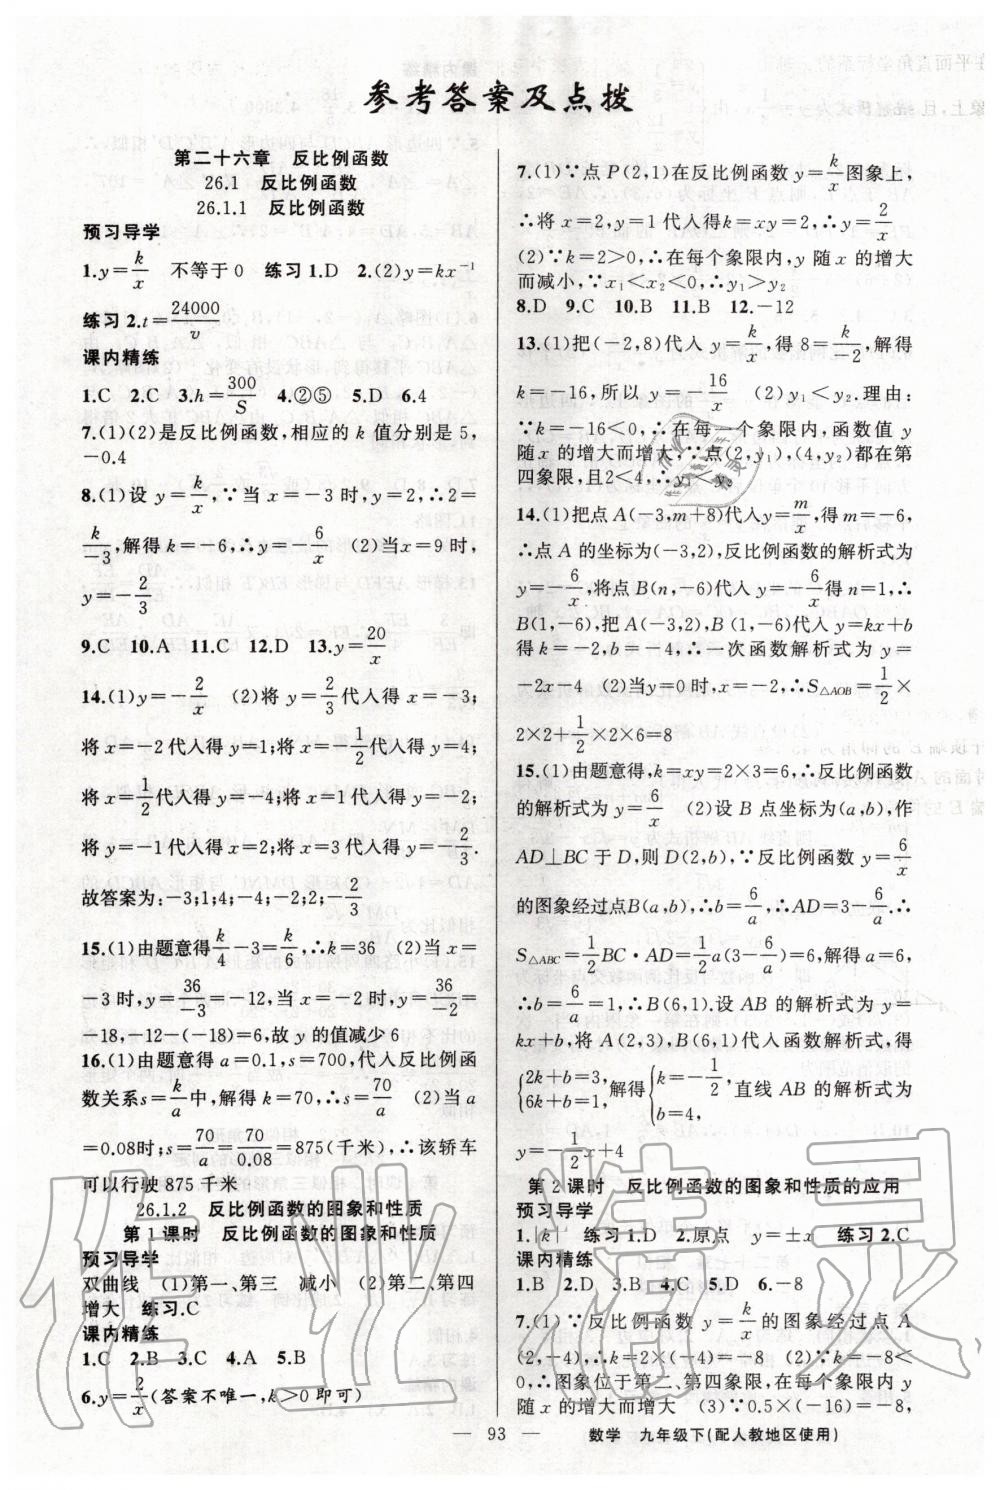 参考答案及点拨
第二十六章　反比例函数
26.1　反比例函数
26.1.1　反比例函数
预习导学
1.y=k/x　不等于0　练习1.D　2.(2)y=kx⁻¹
练习2.t=24000/v
课内精练
1.C　2.C　3.h=300/S　4.②⑤　5.D　6.4
7.(1)(2)是反比例函数,相应的k值分别是5,
-0.4
8.(1)设y=k/x,∵当x=-3时,y=2,∴2=
k/-3,解得k=-6,∴y=-6/x　(2)当x=9时,
y=-2/3
9.C　10.A　11.C　12.D　13.y=20/x
14.(1)y=-2/x　(2)将y=2/3代人得x=-3;
将x=-2代人得y=1;将x=-1/2代人得y=4;
将x=1/2代人得y=-4;将x=1代人得y=-2;
将y=-1代人得x=2;将x=3代人得y=-2/3.
故答案为:-3;1;4;-4;-2;2;-2/3
15.(1)由题意得k/4-3=k/6,∴k=36　(2)当x=
-3时,y=36/-3=-12,当x=-2时,y=36/-2=
-18,-12-(-18)=6,故y的值减少6
16.(1)由题意得a=0.1,s=700,代人反比例函
数关系s=k/a中,解得k=70,∴s=70/a　(2)当a
=0.08时;s=70/a=70/0.08=875(千米),∴该轿车
可以行驶875千米
26.1.2　反比例函数的图象和性质
第1课时　反比例函数的图象和性质
预习导学
双曲线　(1)第一、第三　减小　(2)第二、第四
增大　练习.C
课内精练
1.C　2.B　3.C　4.A　5.B
6.y=2/x(答案不唯一,k>0即可)
7.(1)∵点P(2,1)在反比例函数y=k/x图象上,
∴将x=2,y=1代人得k=xy=2,∴y=2/x
(2)∵k=2>0,∴在每个象限内,y随x的增大
而减小,∵x₁<x₂<0,∴y₁>y₂
8.D　9.C　10.B　11.B　12.-12
13.(1)把(-2,8)代人y=k/x,得8=k/-2,解得
k=-16,所以y=-16/x　(2)y₁<y₂.理由:
∵k=-16<0,∴在每一个象限内,函数值y
随x的增大而增大,∵点(2,y₁),(4,y₂)都在第
四象限,且2<4,∴y₁<y₂
14.(1)把点A(-3,m+8)代人y=m/x,得m=-6,
∴点A的坐标为(-3,2),反比例函数的解析式为
y=-6/x,将点B(n,-6)代人y=-6/x得n=1,∴
B(1,-6),把A(-3,2),B(1,-6)代人y=kx+b
得k=-2,b=-4,∴一次函数解析式为y=
-2x-4　(2)当y=0时,x=-2,∴S△AOB=1/2×
2×2+1/2×2×6=8
15.(1)由题意得,k=xy=2×3=6,∴反比例函数
的解析式为y=6/x　(2)设B点坐标为(a,b),作
AD⊥BC于D,则D(2,b),∵反比例函数y=6/x
的图象经过点B(a,b),∴b=6/a,∴AD=3-6/a.∴
S△ABC=1/2BC·AD=1/2a(3-6/a)=6,解得a=6,
∴b=6/a=1,∴B(6,1).设AB的解析式为y=
kx+b,将A(2,3),B(6,1)代入函数解析式,得
{2k+b=3,6k+b=1,解得{k=-1/2,b=4,直线AB的解析式为
y=-1/2x+4
第2课时　反比例函数的图象和性质的应用
预习导学
1.|k|　练习1.D　2.原点　y=±x　练习2.C
课内精练
1.B　2.D　3.B　4.C　5.D　6.-8
7.(1)∵反比例函数y=k/x的图象经过点A
(2,-4),∴k=2×(-4)=-8　(2)∵k=-8<
0,∴图象位于第二、第四象限,在每个象限内y
随x的增大而增大　(3)∵0.5×(-16)=-8,
— 93 —　数学　九年级下(配人教地区使用)
作业精灵